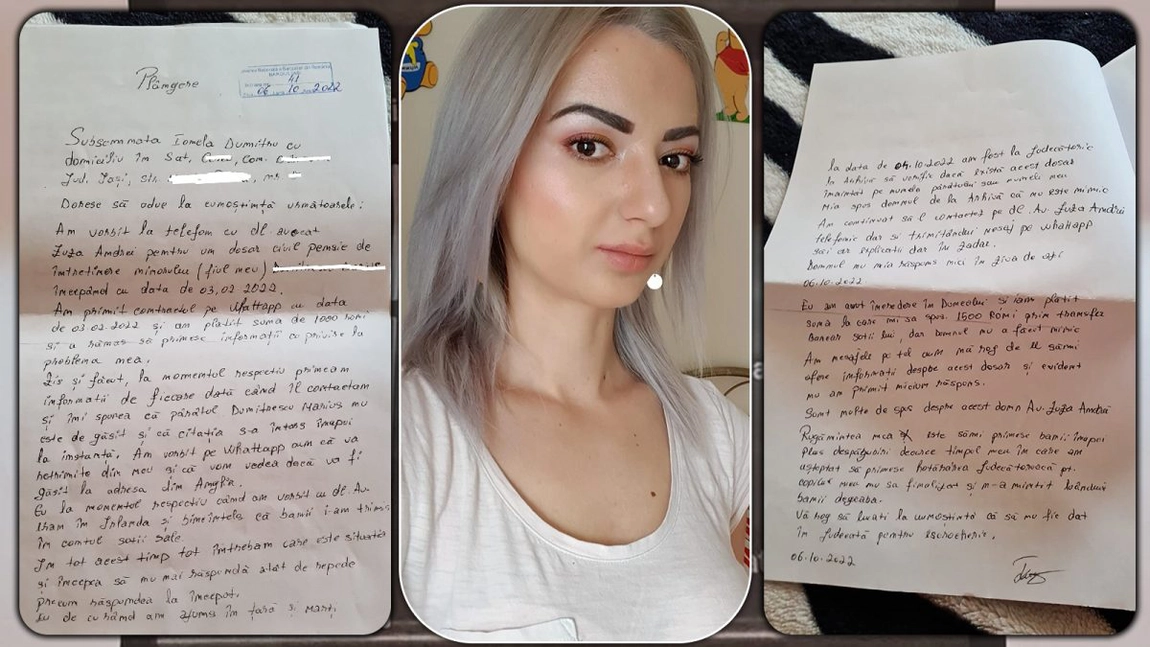 Plângere
41
06 10 2022
Subsemnata Ionela Dumitru cu
domiciliu în Sat, Com.
Jud. Iași, str.
Doresc să aduc la cunoștință următoarele:
Am vorbit la telefon cu dl avocat
Luza Andrei pentru un dosar civil pensie de
întreținere minorului (fiul meu)
începând cu data de 03,02.2022.
Am primit contractul pe Whattapp cu data
de 03.02.2022 și am platit suma de 1000 romi
și a rămas să primesc informații cu privire la
problema mea.
Zis și făcut, la momentul respectiv primeam
informații de fiecare dată când îl contactam
și îmi spunea că pârâtul Dumitrescu Marius nu
este de găsit și că citația s-a întors înapoi
la instanță. Am vorbit pe Whattapp cum că va
retrimite din nou și că vom vedea dacă va fi
găsit la adresa din Anglia.
Eu la momentul respectiv când am vorbit cu dl. Av.
eram în Irlanda și bineînteles că banii i-am trimis
în contul soții sale.
În tot acest timp tot întrebam care este situația
și începea să nu mai răspundă atât de repede
precum răspundea la început.
Eu de curând am ajuns în țară și marți
la data de 04.10.2022 am fost la Judecătorie
la Arhivă să verific dacă există acest dosar
înaintat pe numele pârâtului sau numele meu
Mia spus domnul de la Arhivă că nu este nimic
Am continuat să l contactez pe dl. Av. Luza Andrei
telefonic dar și trimitându-i mesaj pe whattapp
să-i cer explicatii dar în zadar.
Domnul nu mia răspuns nici în ziua de azi
06.10.2022
Eu am avut încredere în Dumealui și iam platit
suma la care mi sa spus 1500 RONI prin transfer
Bancar soții lui, dar Domnul nu a făcut nimic
Am mesajele pe tel cum mă rog de el sămi
ofere informații despre acest dosar și evident
nu am primit niciun răspuns.
Sunt multe de spus despre acest domn Av. Luza Andrei
Rugămintea mea este sămi primesc banii înapoi
Plus despăgubiri deoarece timpul meu în care am
așteptat să primesc hotărârea Judecătorească pt.
copilul meu nu sa finalizat și m-a mintit luându-i
banii degeaba.
Vă rog să luati la cunoștință că să nu fie dat
în Judecată pentru escrocherie.
06.10.2022